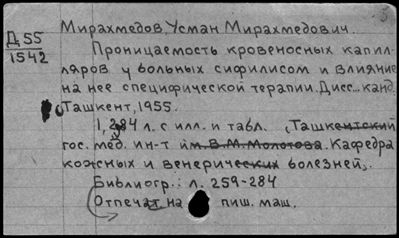 Д 55
1542
Мирахмедов, Усман Мирахмедович.
Проницаемость кровеносных капил-
ляров у больных сифилисом и влияние
на нее специфической терапии. Дисс... канд.
Ташкент, 1955.
1, 284 л. с илл. и табл. (Ташкентский
гос. мед. ин-т им. В. М. Молотова. Кафедра
кожных и венерических болезней).
Библиогр.: л. 259-284
Отпечат на пиш. маш.